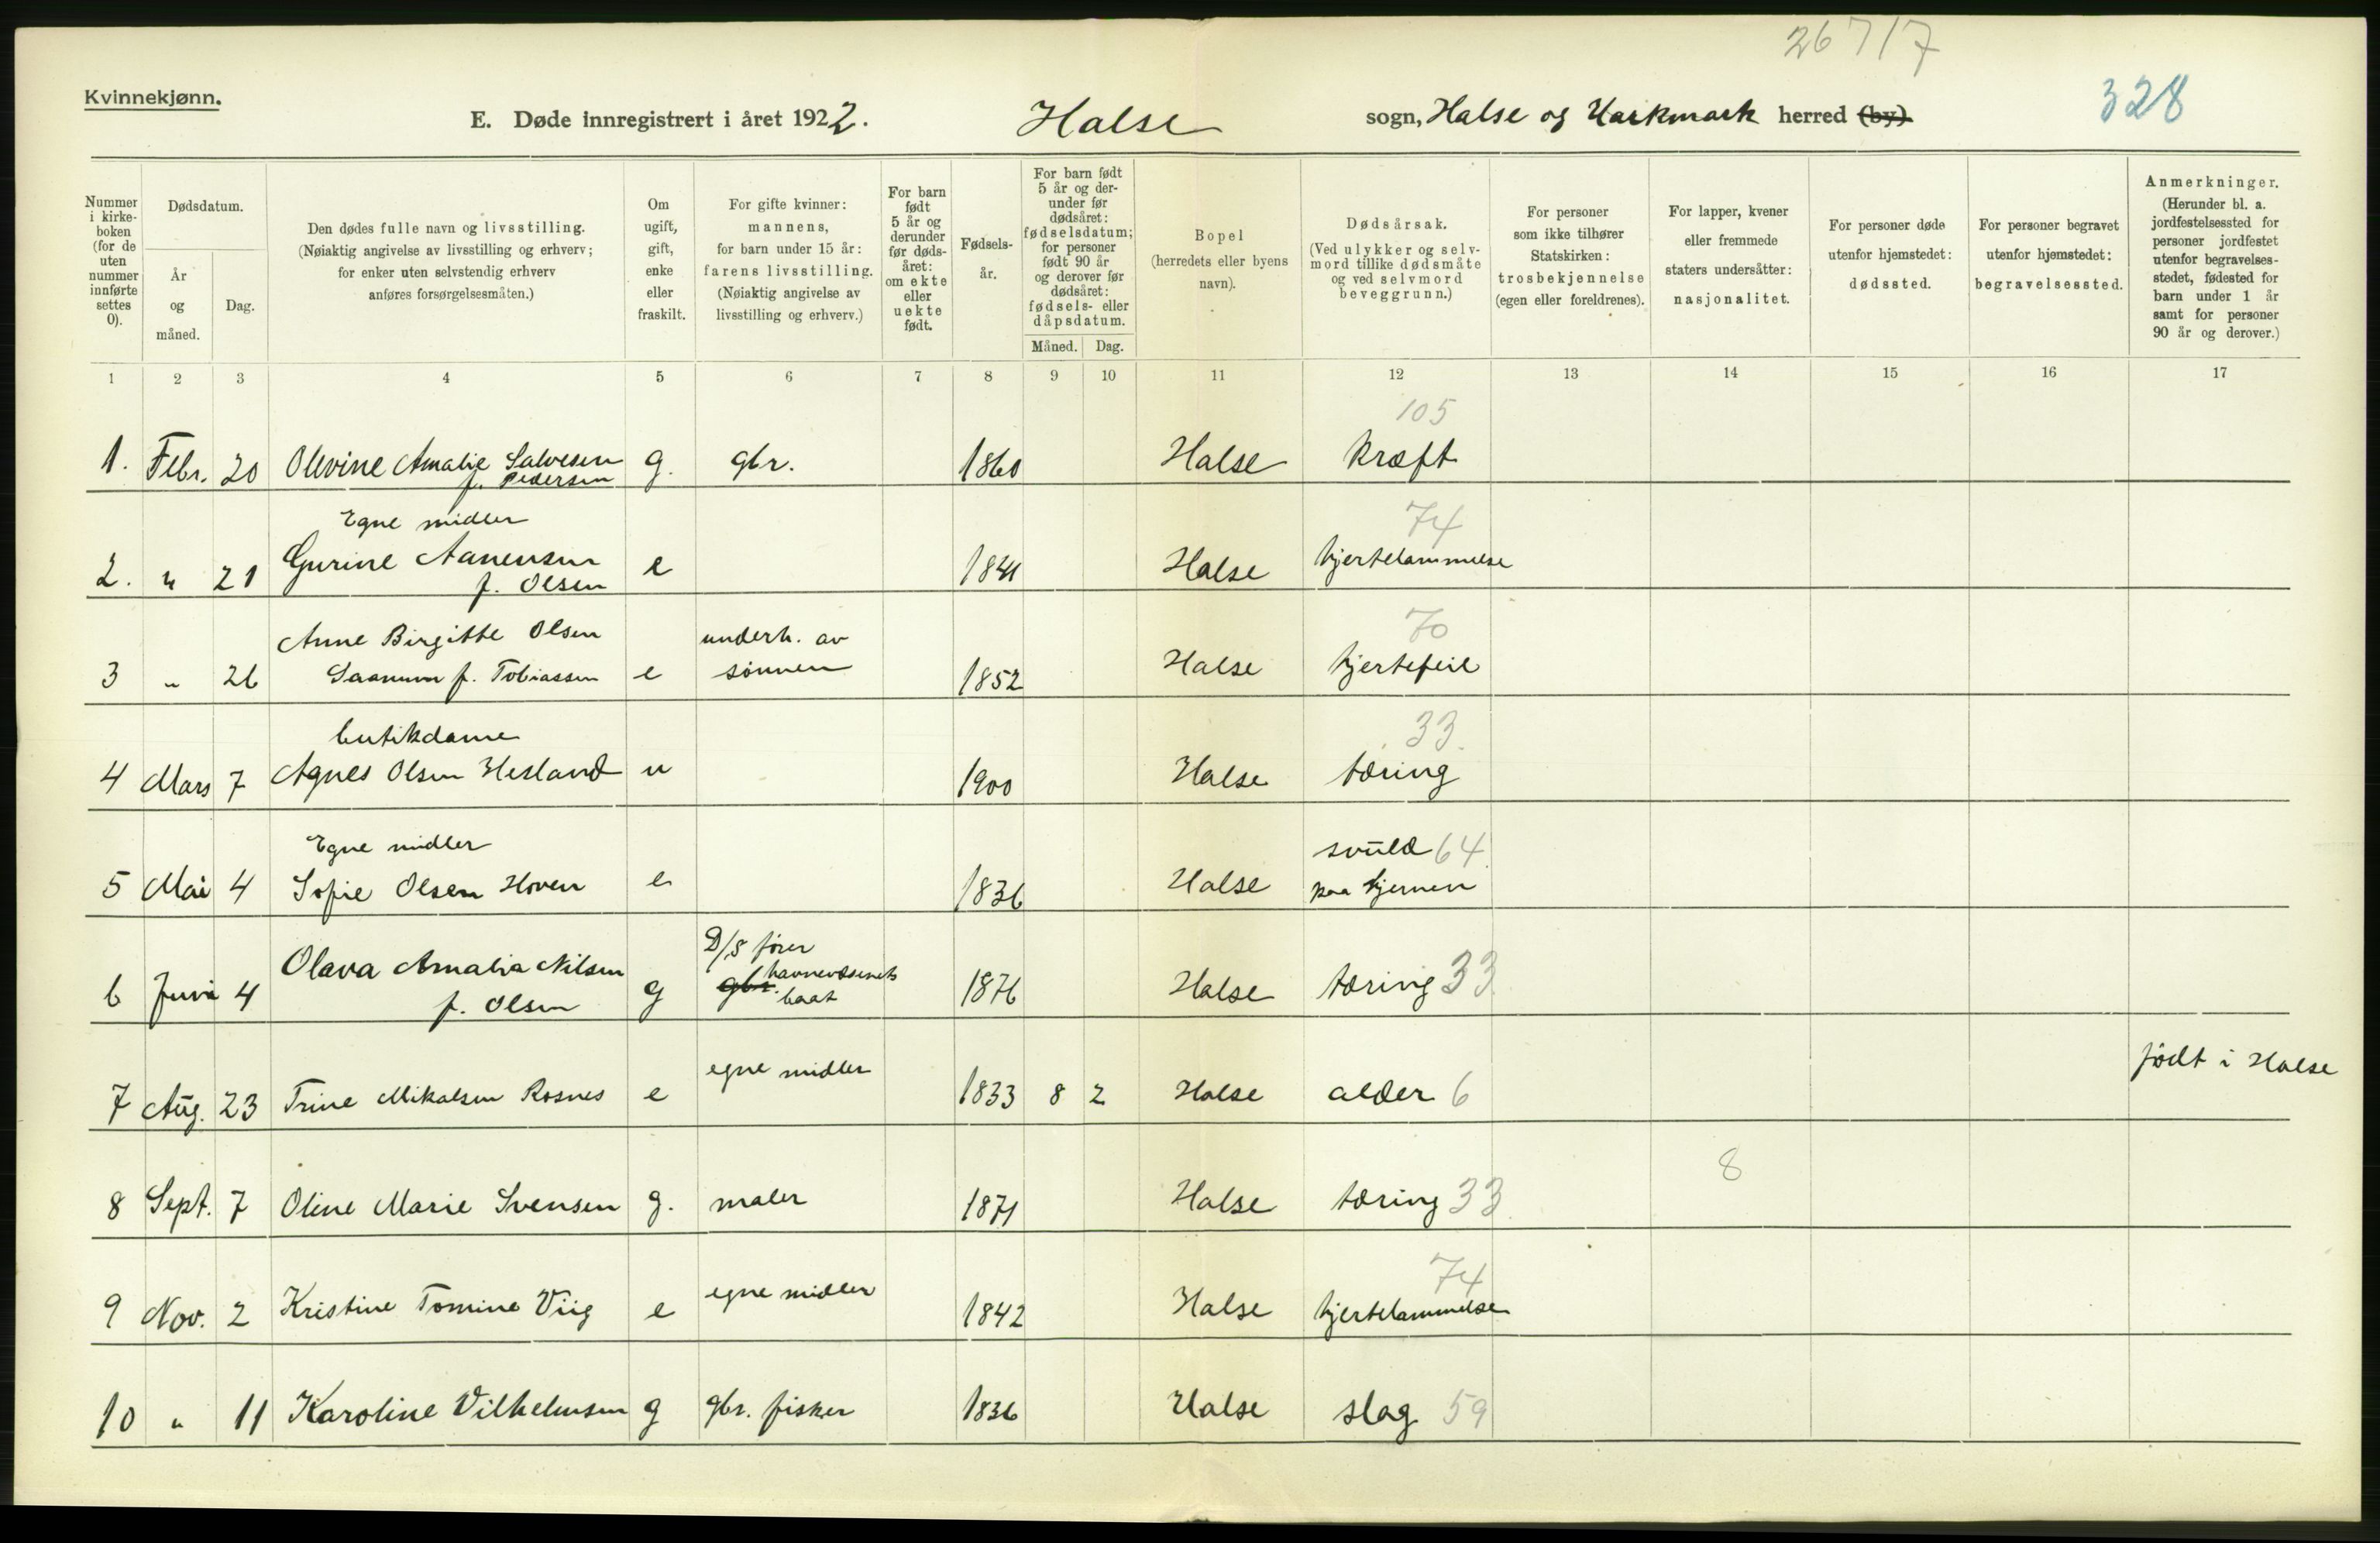 26717
Kvinnekjønn.
328
E. Døde innregistrert i året 1922. Halse sogn, Halse og Harkmark herred (by).
Nummer i kirkeboken (for de uten nummer innførte settes 0).
Dødsdatum.
År og måned.
Dag.
Den dødes fulle navn og livsstilling. (Nøiaktig angivelse av livsstilling og erhverv; for enker uten selvstendig erhverv anføres forsørgelsesmåten.)
Om ugift, gift, enke eller fraskilt.
For gifte kvinner: mannens, for barn under 15 år: farens livsstilling. (Nøiaktig angivelse av livsstilling og erhverv.)
For barn født 5 år og derunder før dødsåret: om ekte eller uekte født.
Fødselsår.
For barn født 5 år og derunder før dødsåret: fødselsdatum; for personer født 90 år og derover før dødsåret: fødsels- eller dåpsdatum.
Måned. Dag.
Bopel (herredets eller byens navn).
Dødsårsak. (Ved ulykker og selvmord tillike dødsmåte og ved selvmord beveggrunn.)
For personer som ikke tilhører Statskirken: trosbekjennelse (egen eller foreldrenes).
For lapper, kvener eller fremmede staters undersåtter: nasjonalitet.
For personer døde utenfor hjemstedet: dødssted.
For personer begravet utenfor hjemstedet: begravelsessted.
Anmerkninger. (Herunder bl. a. jordfestelsessted for personer jordfestet utenfor begravelsesstedet, fødested for barn under 1 år samt for personer 90 år og derover.)
1 2 3 4 5 6 7 8 9 10 11 12 13 14 15 16 17
105
1. Febr. 20 Olevine Amalie Salvesen g. gbr. 1860 Halse kræft
f. Pedersen
Egne midler 74
2. " 21 Gurine Aanensen e 1841 Halse hjertelammelse
f. Olsen
Anne Birgitte Olsen underh. av 70
3 " 26 Saanum f. Tobiassen e sønnen 1852 Halse hjertefeil
butikdame 33
4 Mars 7 Agnes Olsen Hesland u 1900 Halse tæring
Egne midler svuld 64
5 Mai 4 Sofie Olsen Hoven e 1836 Halse paa hjernen
D/S fører
6 Juni 4 Olava Amalia Nilsen g gbr. havnevæsenets 1876 Halse tæring 33
f. Olsen baat
egne midler født i Halse
7 Aug. 23 Trine Mikalsen Rosnes e 1833 8 2 Halse alder 6
8
8 Sept. 7 Oline Marie Svensen g. maler 1871 Halse tæring 33
74
9 Nov. 2 Kristine Tomine Viig e egne midler 1842 Halse hjertelammelse
10 " 11 Karoline Vilhelmsen g gbr. fisker 1836 Halse slag 59